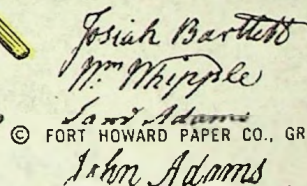 Josiah Bartlett
Wm Whipple
Saml Adams
© FORT HOWARD PAPER CO., GR
John Adams